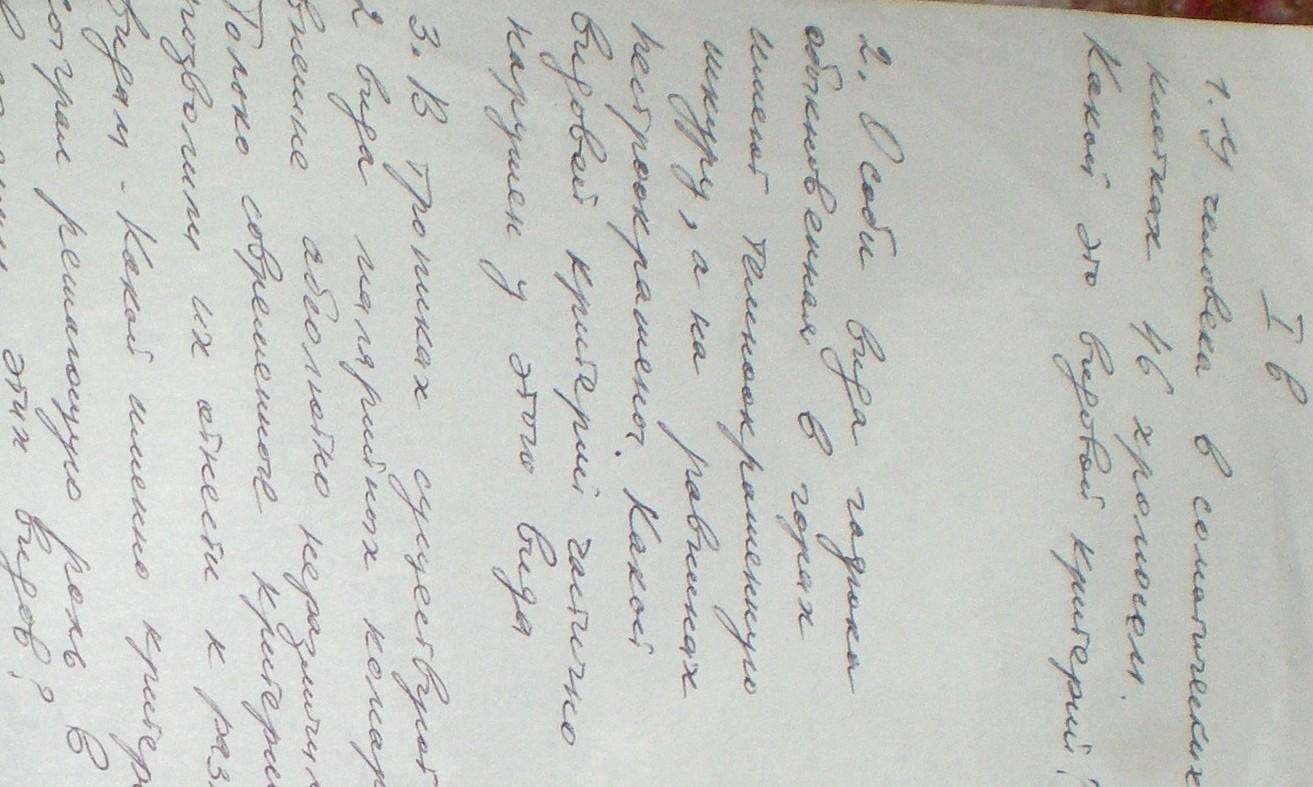 I в
1. У человека в соматических
клетках 46 хромосом.
Какой это видовой критерий?
2. Особи вида гадюка
обыкновенная в горах
имеют темноокрашенную
шкуру, а на равнинах
пестроокрашены. Какой
видовой критерий частично
нарушен у этого вида
3. В тропиках существуют
2 вида малярийных комар
внешне абсолютно неразличи
Только современные критери
позволили их отнести к раз
видам. Какой именно критер
сыграл решающую роль в
этих видов?